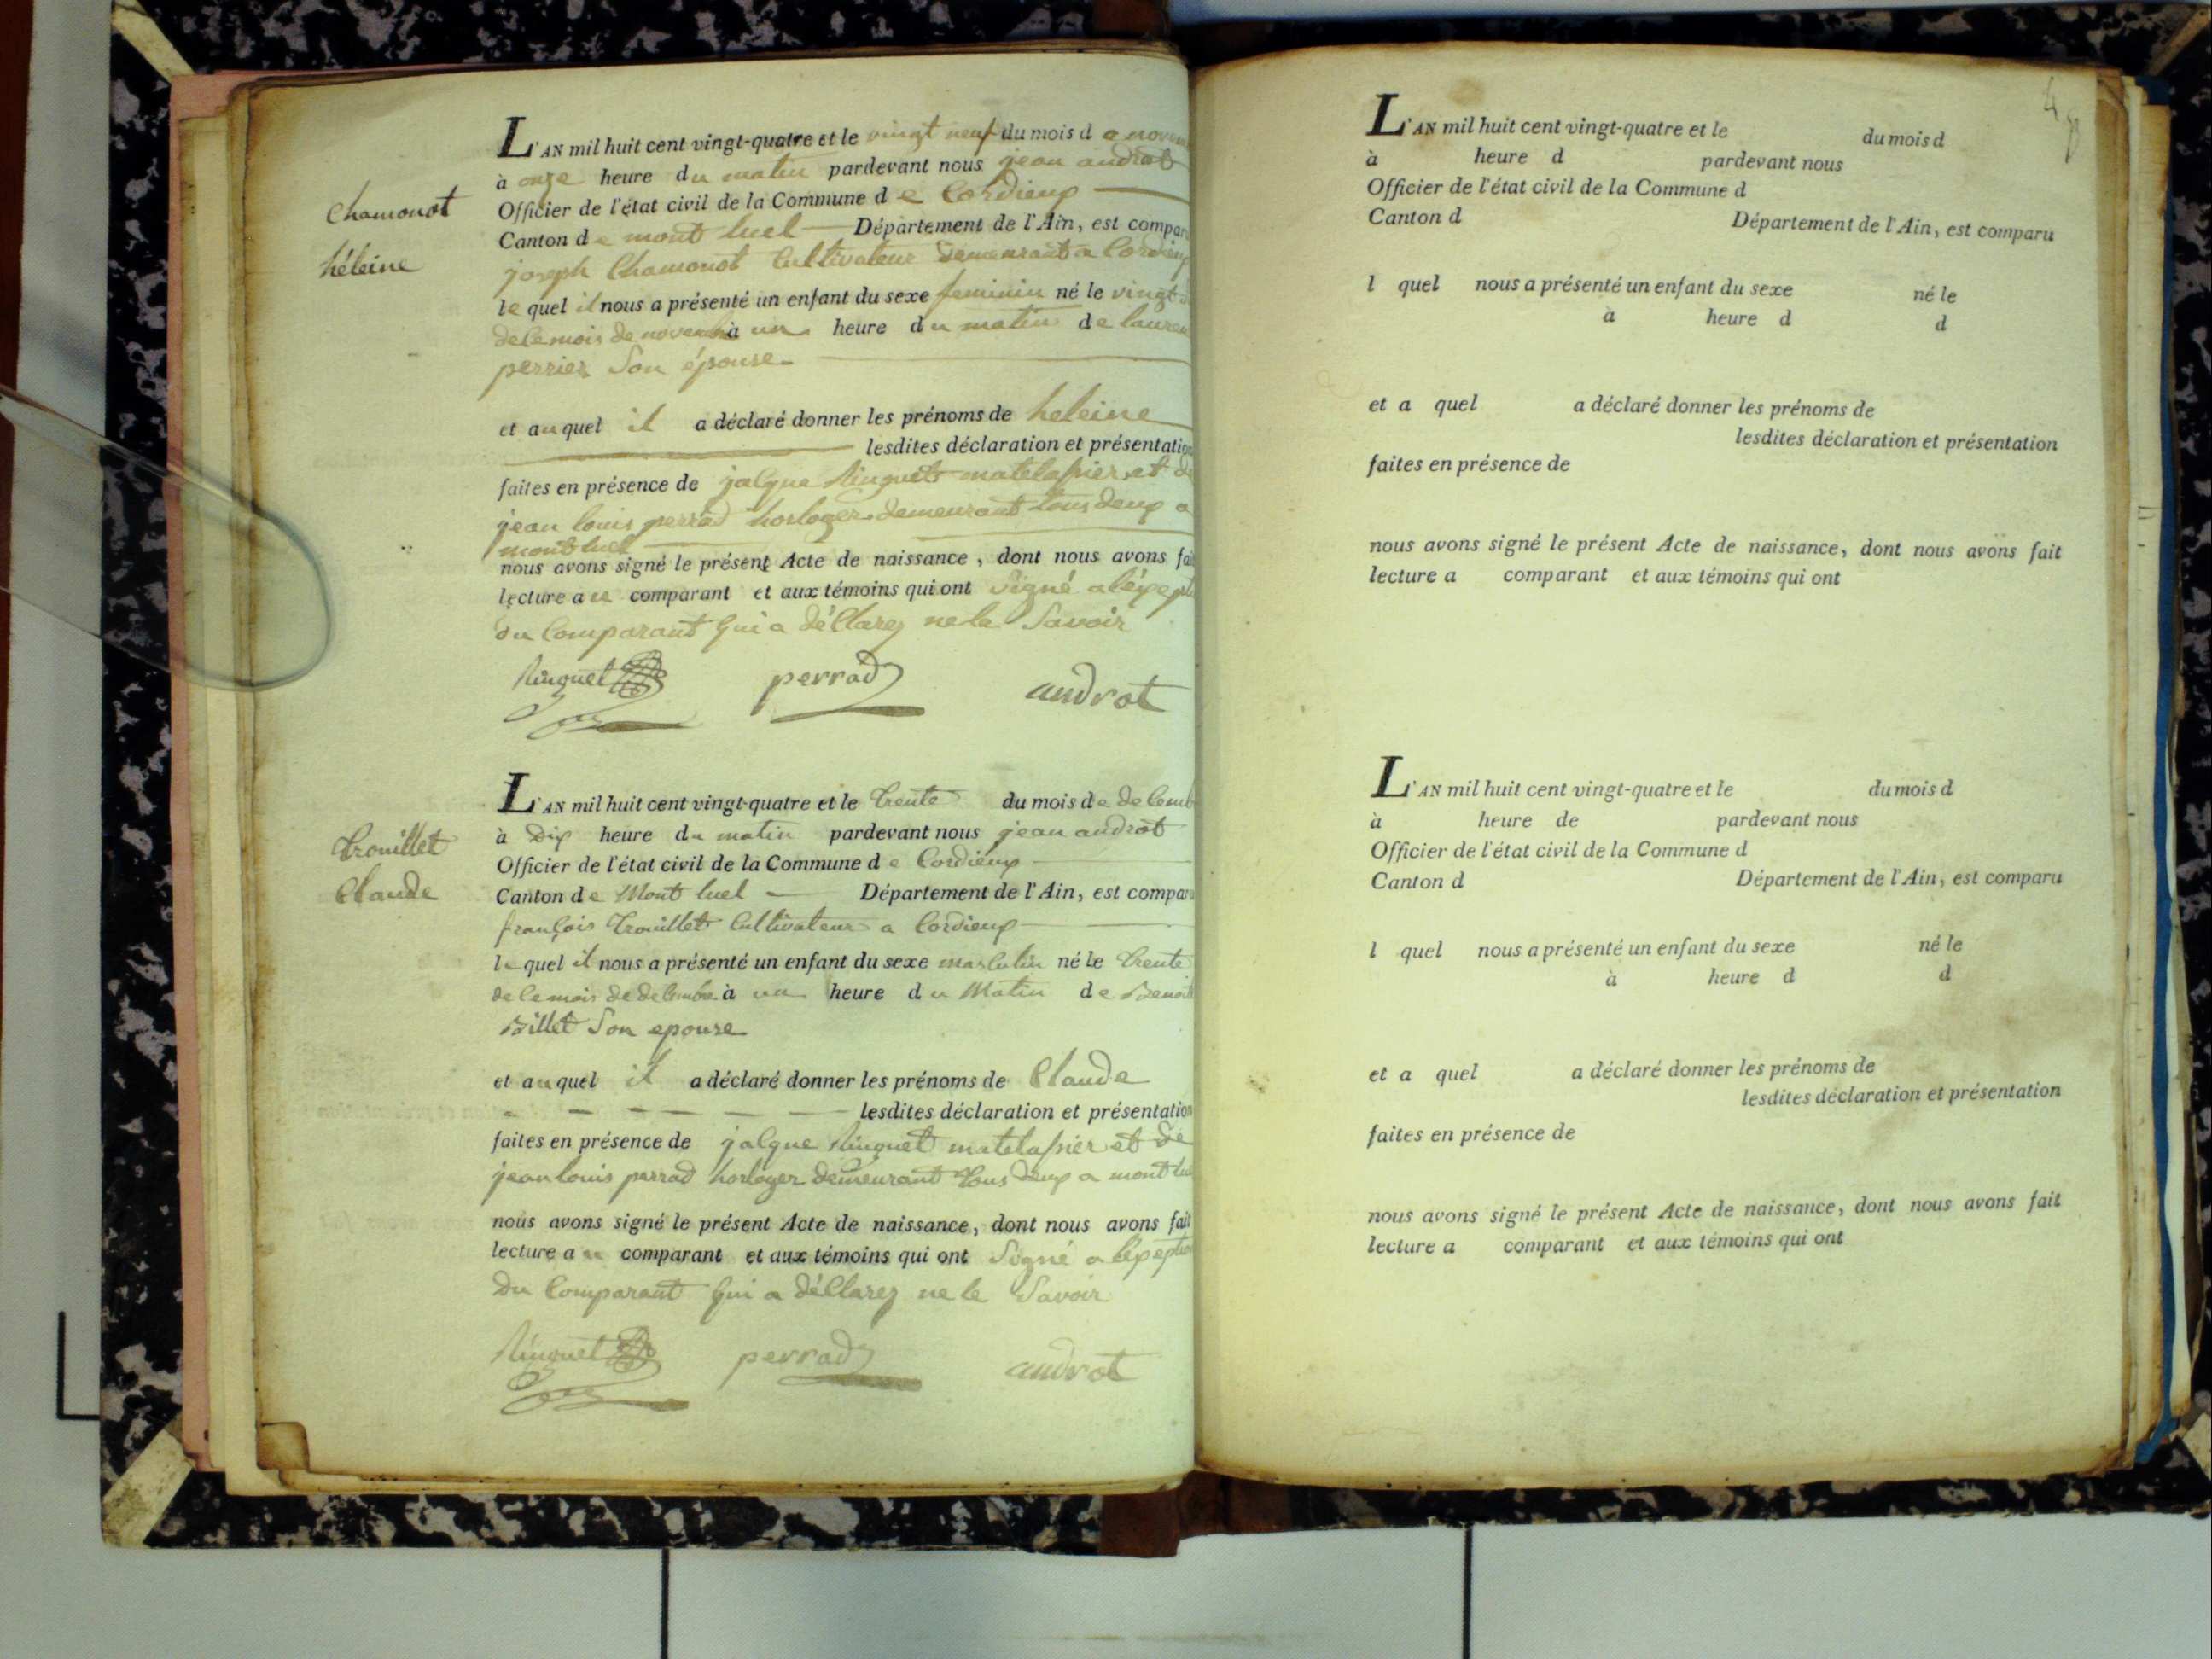 Chamonot
héleine
L'AN mil huit cent vingt-quatre et le vingt neuf du mois d e novem
à onze heure du matin pardevant nous jean androt
Officier de l'état civil de la Commune d e Cordieux
Canton de mont luel Département de l'Ain, est compar
joseph Chamonot Cultivateur demeurant a Cordieux
le quel il nous a présenté un enfant du sexe feminin né le vingt
de ce mois de novembre à un heure du matin de
perrier Son épouse
et au quel il a déclaré donner les prénoms de heleine
lesdites déclaration et présentation
faites en présence de jacque Ninguet matelassier et de
jean louis perrad horloger demeurant tous deux a
mont luel
nous avons signé le présent Acte de naissance, dont nous avons fai
lecture au comparant et aux témoins qui ont Signé a l'exept
du Comparant qui a déClarez ne le Savoir
Ninguet perrad androt
trouillet
Claude
L'AN mil huit cent vingt-quatre et le trente du mois de decemb
à Dix heure du matin pardevant nous jean androt
Officier de l'état civil de la Commune d e Cordieux
Canton de Mont luel Département de l'Ain, est compar
françois trouillet Cultivateur a Cordieux
le quel il nous a présenté un enfant du sexe masculin né le trente
de ce mois de decembre à un heure du Matin de Benoit
Billet Son epouse
et au quel il a déclaré donner les prénoms de Claude
lesdites déclaration et présentation
faites en présence de jacque Ninguet matelassier et de
jean louis perrad horloger demeurant tous deux a mont lu
nous avons signé le présent Acte de naissance, dont nous avons fait
lecture au comparant et aux témoins qui ont Signé a l'exeption
Du Comparant qui a déClarez ne le Savoir
Ninguet perrad androt
L'AN mil huit cent vingt-quatre et le du mois d
à heure d pardevant nous
Officier de l'état civil de la Commune d
Canton d Département de l'Ain, est comparu
l quel nous a présenté un enfant du sexe né le
à heure d d
et a quel a déclaré donner les prénoms de
lesdites déclaration et présentation
faites en présence de
nous avons signé le présent Acte de naissance, dont nous avons fait
lecture a comparant et aux témoins qui ont
L'AN mil huit cent vingt-quatre et le du mois d
à heure de pardevant nous
Officier de l'état civil de la Commune d
Canton d Département de l'Ain, est comparu
l quel nous a présenté un enfant du sexe né le
à heure d d
et a quel a déclaré donner les prénoms de
lesdites déclaration et présentation
faites en présence de
nous avons signé le présent Acte de naissance, dont nous avons fait
lecture a comparant et aux témoins qui ont